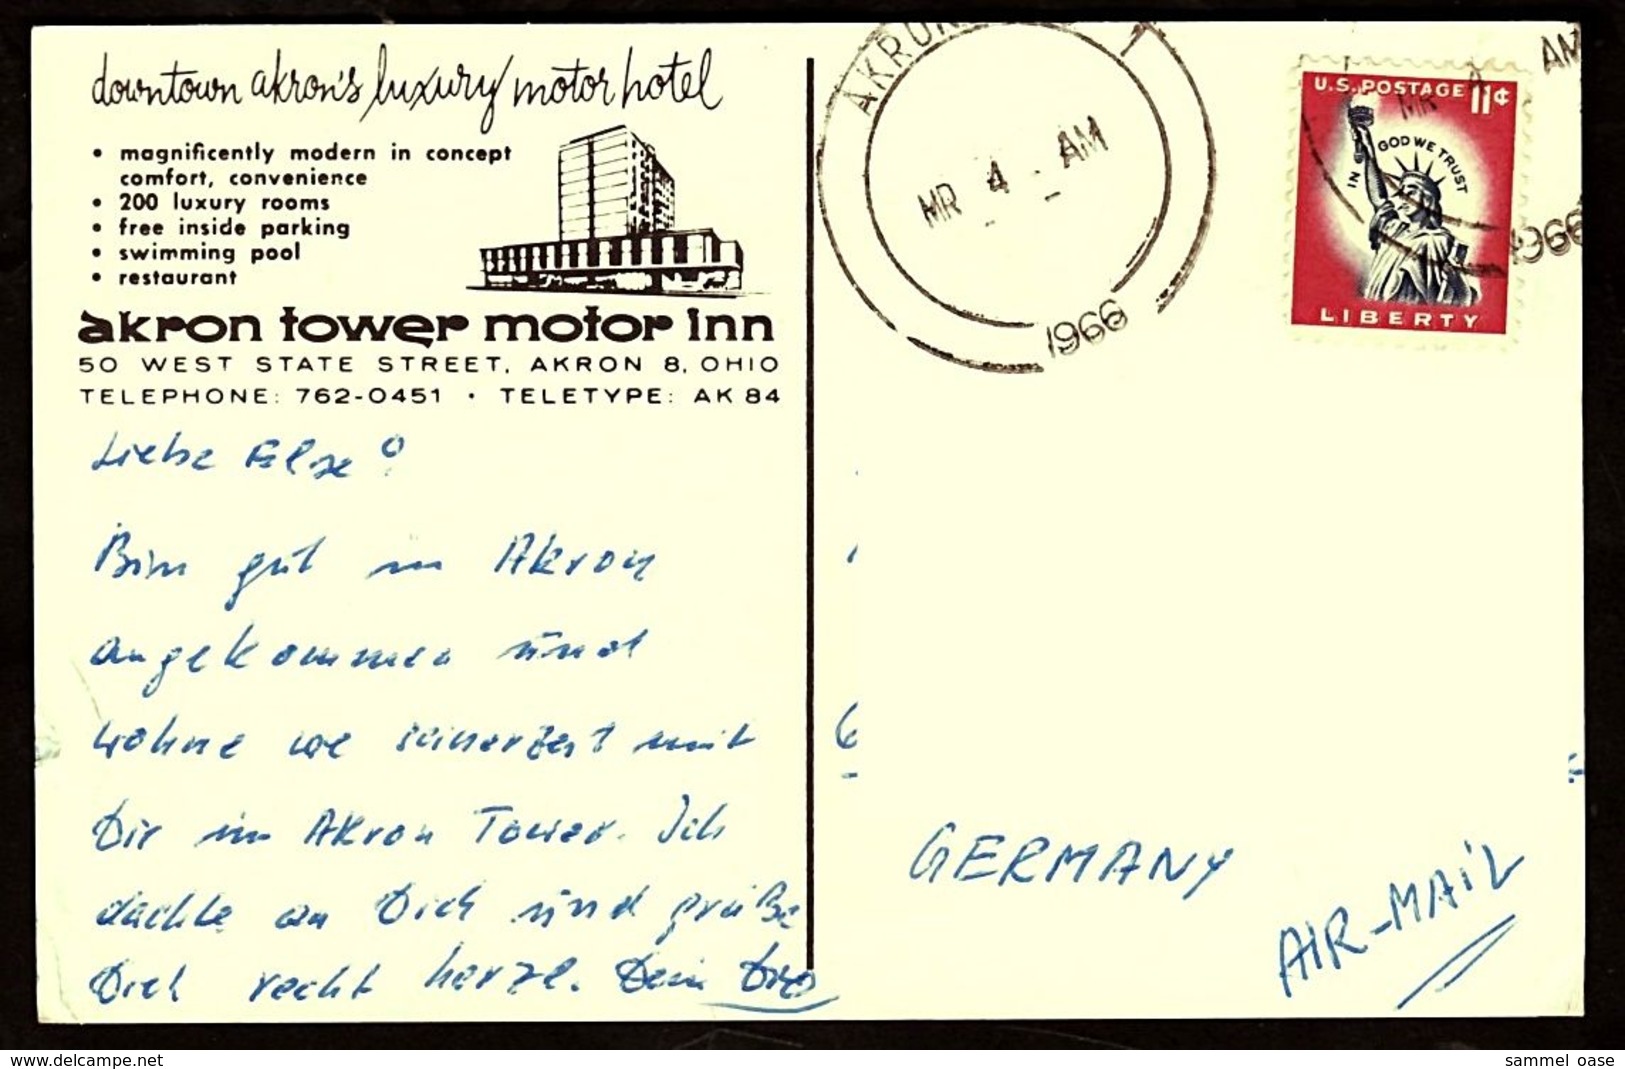 downtown akron's luxury motor hotel
• magnificently modern in concept
comfort, convenience
• 200 luxury rooms
• free inside parking
• swimming pool
• restaurant
akron tower motor inn
50 WEST STATE STREET, AKRON 8, OHIO
TELEPHONE: 762-0451 • TELETYPE: AK 84
Liebe Else!
Bin gut in Akron
angekommen und
wohne wie seinerzeit mit
Dir im Akron Tower. Ich
dachte an Dich und grüße
Dich recht herzl. Dein
AKRON
MR 4 AM
1966
U.S. POSTAGE 11¢
IN GOD WE TRUST
LIBERTY
MR 4 AM
1966
GERMANY
AIR-MAIL
www.delcampe.net
sammel_oase